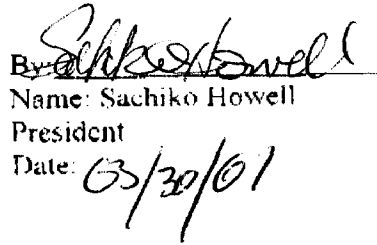 By: Sachiko Howell
Name: Sachiko Howell
President
Date: 03/30/01